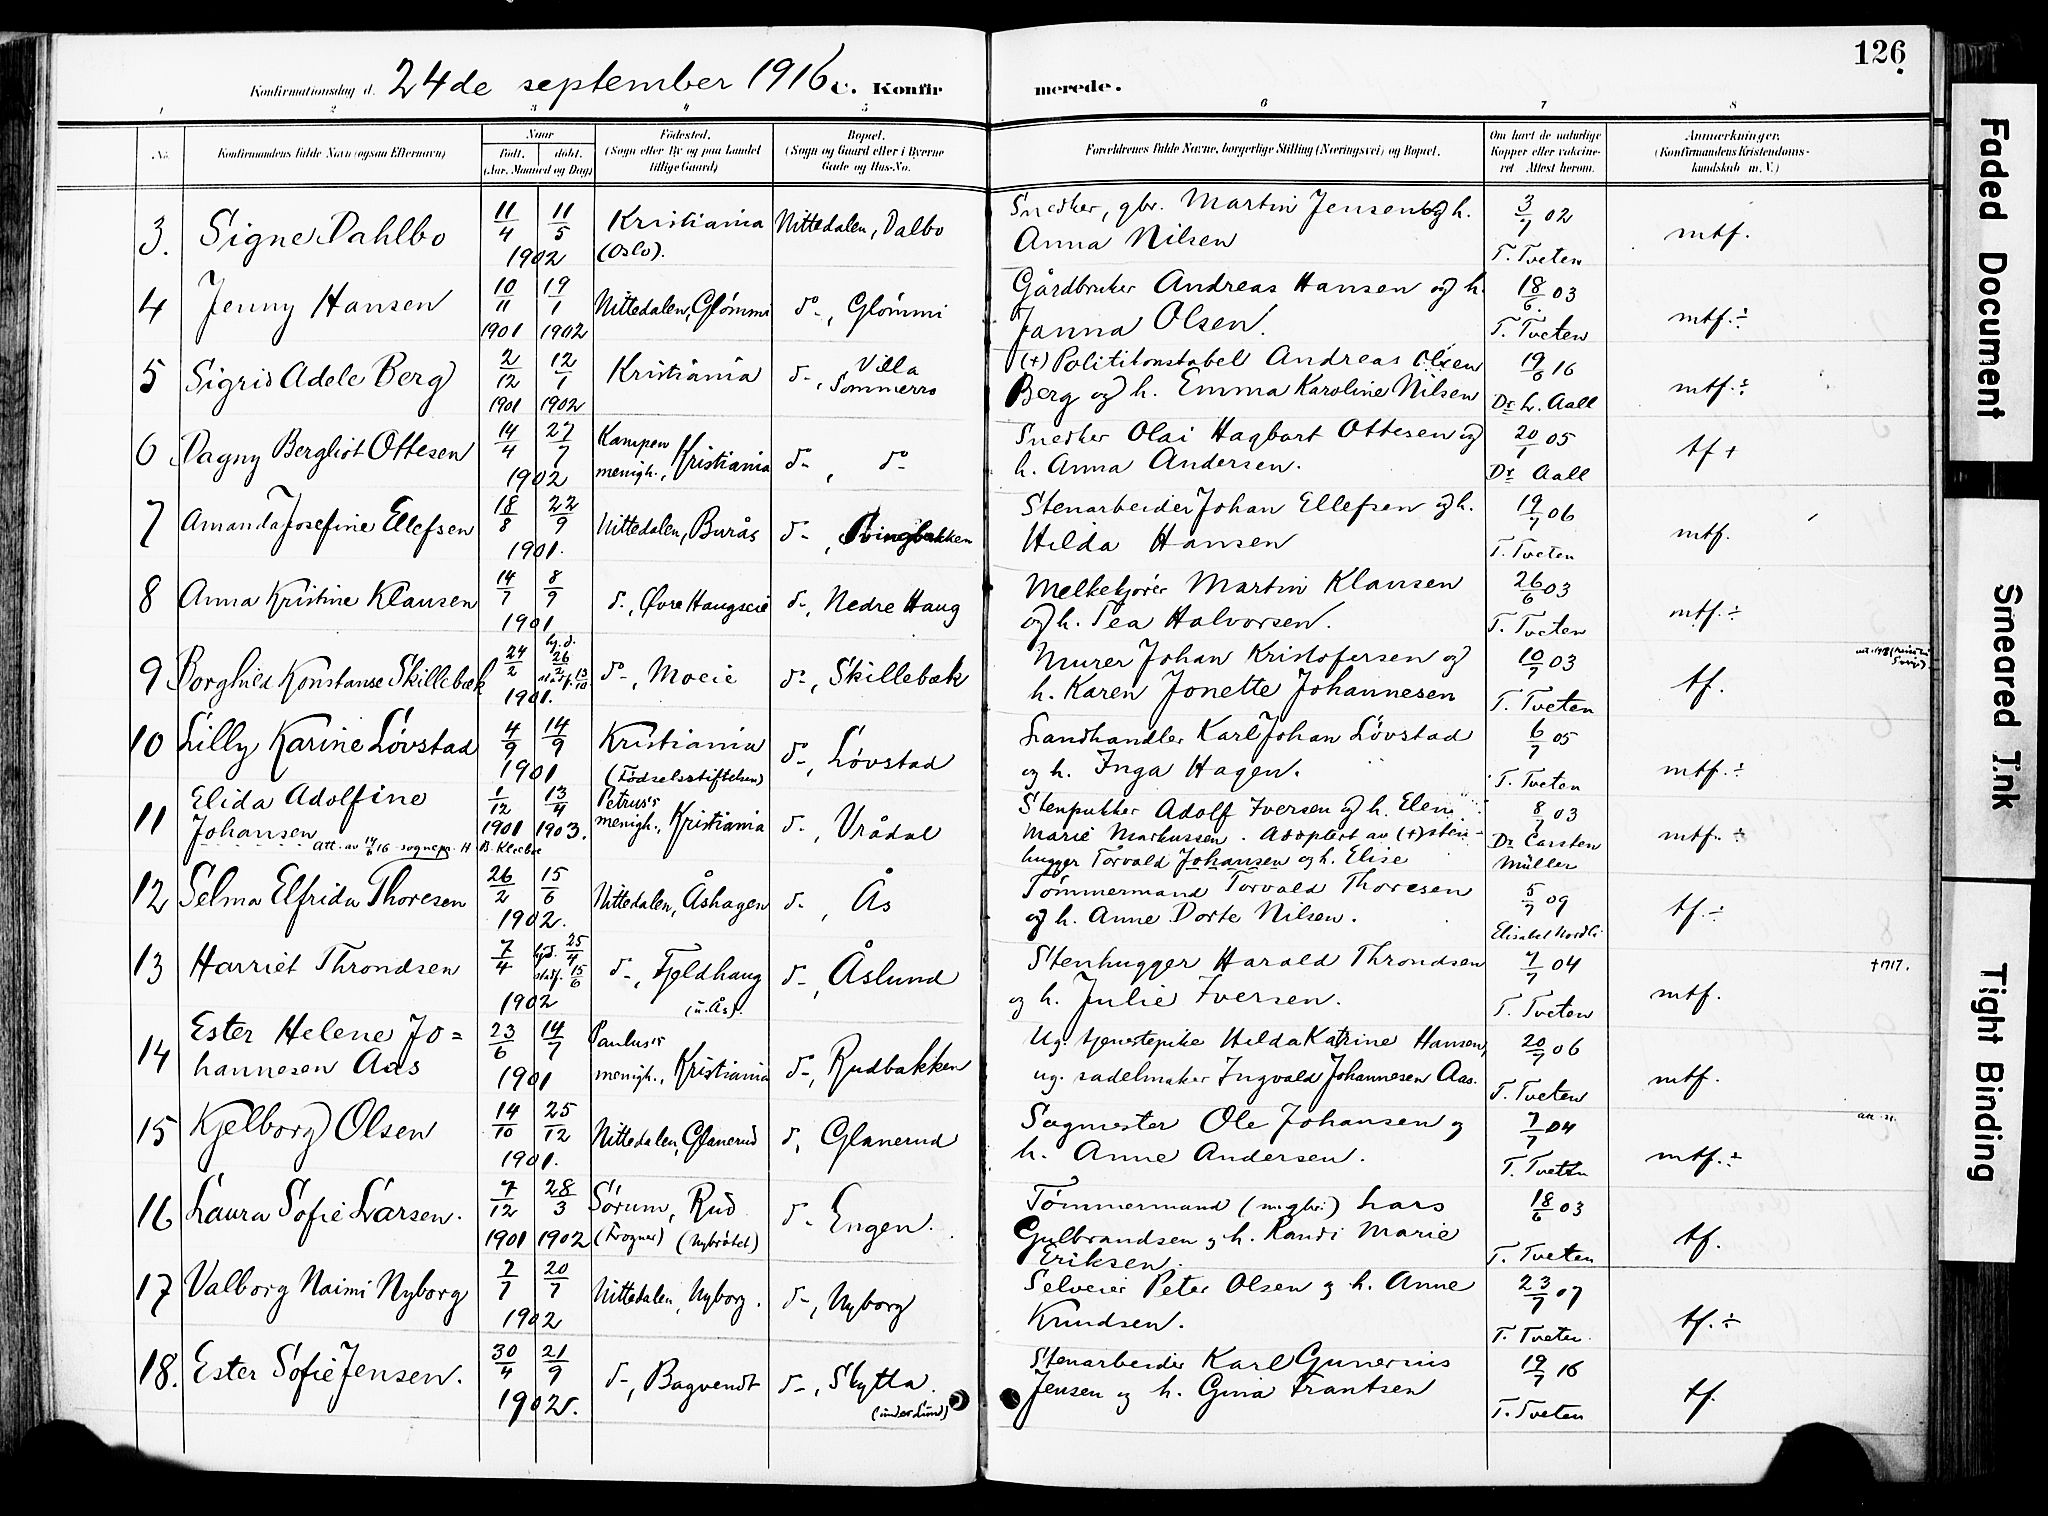 126
Konfirmationsdag d. 24de september 1916 C. Konfirmerede.
1 2 3 4 5 6 7 8
No. Konfirmandens fulde Navn (ogsaa Efternavn)
Naar
Født. døbt.
(Aar, Maaned og Dag)
Fødested.
(Sogn eller By og paa Landet
tillige Gaard)
Bopæl.
(Sogn og Gaard eller i Byerne
Gade og Hus-No.
Forældrenes fulde Navne, borgerlige Stilling (Næringsvei) og Bopæl.
Om havt de naturlige
Kopper eller vakcine-
ret Attest herom.
Anmærkninger.
(Konfirmandens Kristendoms-
kundskab m. V.)
3. Signe Dahlbo 11/4 11/5 1902 Kristiania (Oslo). Nittedalen, Dalbo
Snedker, gbr. Martin Jensen og h. Anna Nilsen 3/7 02 T. Tveten mtf.
4 Jenny Hansen 10/11 1901 19/1 1902 Nittedalen, Glömmi do -, Glömmi
Gårdbruker Andreas Hansen og h. Janna Olsen. 18/6. 03 T. Tveten mtf. ÷
5 Sigrid Adele Berg 2/12 1901 12/1 1902 Kristiania d-, Villa Sommerro
(+) Politikonstabel Andreas Olsen Berg og h. Emma Karoline Nilsen 19/6 16 Dr L. Aall mtf. ÷
6 Dagny Bergliot Ottesen 14/4 27/7 1902 Kampen menigh., Kristiania do-, do-
Snedker Olai Hagbart Ottesen og h. Anna Andersen. 20/1 05 Dr Aall tf +
7 Amanda Josefine Ellefsen 18/8 22/9 1901. Nittedalen, Burås do-, Svingbakken
Stenarbeider Johan Ellefsen og h. Hilda Hansen 19/7 06 T. Tveten mtf.
8 Anna Kristine Klausen 14/7 8/9 1901 d., Øvre Haugseie d-, Nedre Haug
Melkekjører Martin Klausen og h. Tea Halvorsen. 26/6 03 T. Tveten mtf. ÷
9 Borghild Konstanse Skillebæk 24/2 hj.d. 26/2 stadf. 13/10 1901. do-, Moeie do-, Skillebæk
Murer Johan Kristofersen og h. Karen Jonette Johannesen 10/7 03 T. Tveten tf.
10 Lilly Karine Lövstad 4/9 14/9 1901 Kristiania (Födselsstiftelsen) do-, Lövstad
Landhandler Karl Johan Lövstad og h. Inga Hagen. 6/7 05 T. Tveten mtf. ÷
11 Elida Adolfine Johansen 1/12 1901 13/4 1903. Petrus's menigh., Kristiania d-, Vrådal
att. av 14/6 16 sognepr. H. B. Kleebe
Stenpukker Adolf Iversen og h. Eleni Marie Markussen. Adoptert av (+) sten-
hugger Torvald Johansen og h. Elise 8/7 03 Dr Carsten Müller mtf. ÷
12 Selma Elfrida Thoresen 26/2 15/6 1902. Nittedalen, Åshagen d-, Ås
Tömmermand Torvald Thoresen og h. Anne Dorte Nilsen. 5/7 09 Elisabet Nordli tf. ÷
13 Harriet Throndsen 7/4 hjd. 25/4 stadf. 15/6 1902 d-, Fjeldhaug (u. Ås). d-, Åslund
Stenhugger Harald Throndsen og h. Julie Iversen. 7/7 04 T. Tveten mtf. +1717.
14 Ester Helene Jo=
hannesen Aas 23/6 14/7 1901 Paulus's menigh., Kristiania do-, Rudbakken
Ug. tjenestepike Hilda Katrine Hansen, ug. sadelmaker Ingvald Johannesen Aas. 20/7 06 T. Tveten mtf.
15 Kjelborg Olsen 14/10 25/12 1901. Nittedalen, Glanerud d, Glanerud
Sagmester Ole Johansen og h. Anne Andersen. 7/7 04 T. Tveten mtf. ÷
16 Laura Sofie Larsen. 7/12 1901 28/3 1902 Sörum, Rud (Frogner) (Nybråtet) d- Engen.
Tömmermand (m gbr.) Lars Gulbrandsen og h. Randi Marie Eriksen. 18/6 03 T. Tveten tf.
17 Valborg Naimi Nyborg 7/7 20/7 1902 Nittedalen, Nyborg. d-, Nyborg
Selveier Peter Olsen og h. Anne Knudsen. 23/7 07 T. Tveten tf. ÷
18. Ester Sofie Jensen. 30/4 21/9 1902. d-, Bagvendt d-, Skytta. (under Lund)
Stenarbeider Karl Gunerius Jensen og h. Gina Frantsen 19/7 16 T. Tveten tf.
Faded Document
Smeared Ink
Tight Binding